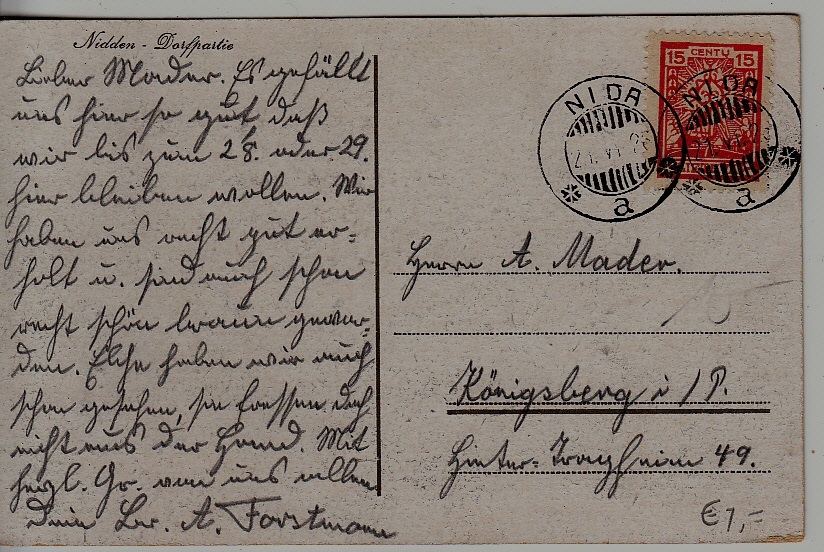 Nidden - Dorfpartie
Lieber Mader. Es gefällt
uns hier so gut, daß
wir bis zum 28. oder 29.
hier bleiben wollen. Wir
haben uns recht gut er=
holt u. sind auch schon
recht schön braun gewor=
den. Elche haben wir auch
schon gesehen, sie fressen doch
nicht aus der Hand. Mit
herzl. Gr. von uns allen
Dein Br. A. Forstmann
15 CENTŲ 15
NIDA
21. VI.
a
NIDA
21. VI.
a
Herrn A. Mader.
Königsberg i/P.
Hinter-Tragheim 49.
€ 7,-